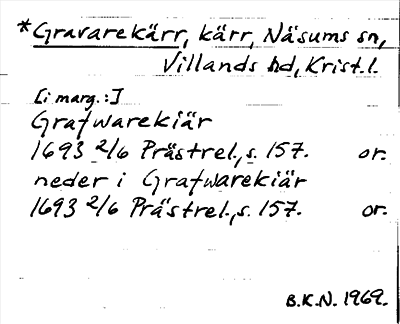 *Gravarekärr, kärr, Näsums sn,
Villands hd, Krist. l.
[i marg.:]
Grafwarekiär
1693 2/6 Prästrel., s. 157. or.
neder i Grafwarekiär
1693 2/6 Prästrel., s. 157. or.
B.K.N. 1969.